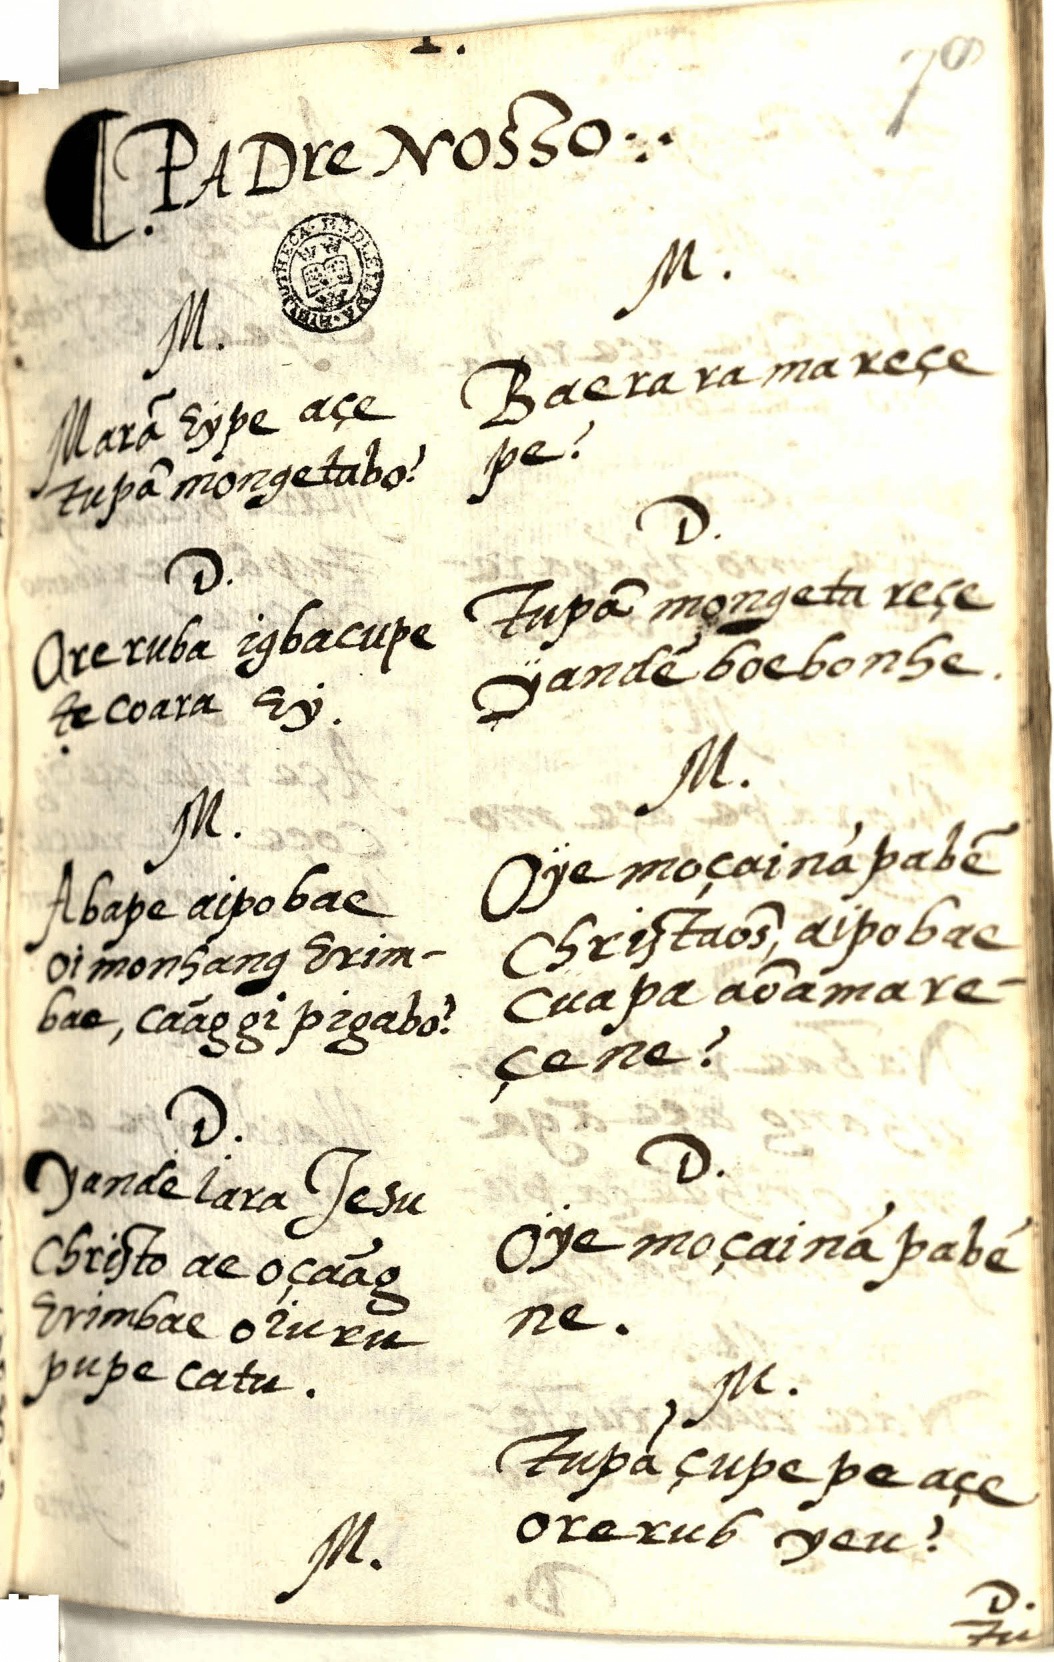 I.
70
PADre Nosso
M.
Marã Eỹpe açe
tupã mongetabo?
D.
Ore ruba igbacupe
tecoara Eỹ.
M.
Abape aipobae
oimonhang Erim-
bae, caãggi pigabo?
D.
Yande iara Jesu
Christo ae oçaãg
Erimbae oiuru
pupe catu.
M.
M.
Baerarama reçe
pe?
D.
Tupã mongeta reçe
ÿandé boebonhe.
M.
Oÿe moçainá pabẽ
Christaõs, aipobae
cuapa aoãmare-
çene?
D.
Oÿe moçainá pabé
ne.
M.
Tupã çupe pe açe
ore rub yeu?
D.
Tu
BIBLIOTHECA BODLEIANA